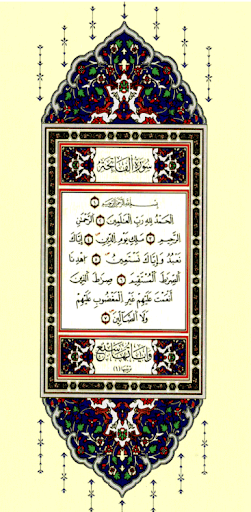 سورة الفاتحة
بسم الله الرحمن الرحيم ١
الحمد لله رب العلمين ٢ الرحمن
الرحيم ٣ ملك يوم الدين ٤ إياك
نعبد وإياك نستعين ٥ اهدنا
الصرط المستقيم ٦ صرط الذين
أنعمت عليهم غير المغضوب عليهم
ولا الضالين ٧
وآياتها سبع